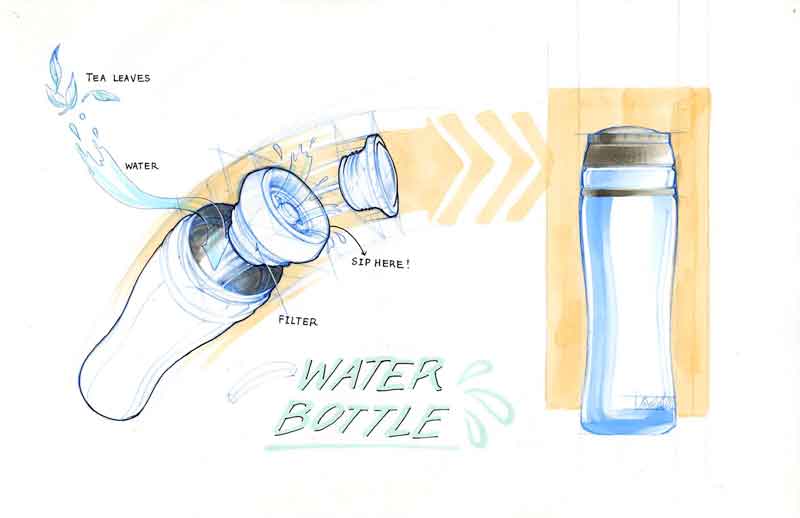 TEA LEAVES
WATER
SIP HERE!
FILTER
WATER
BOTTLE